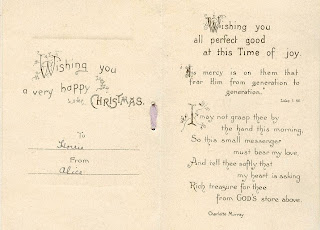 Wishing you
a very happy
CHRISTMAS.
To
From
Alice
Wishing you
all perfect good
at this Time of joy.
His mercy is on them that
fear Him from generation to
generation."
Luke 1. 50
I may not grasp thee by
the hand this morning,
So this small messenger
must bear my love,
And tell thee softly that
my heart is asking
Rich treasure for thee
from GOD'S store above.
Charlotte Murray